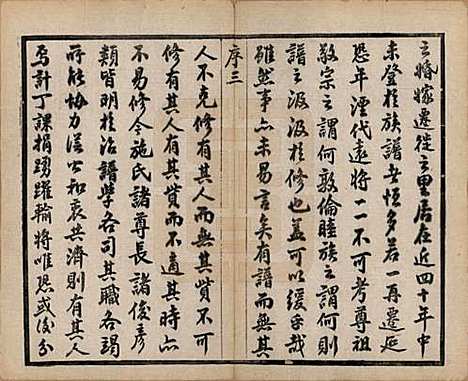 之婚嫁遷徙之里居在近四十年中
未登於族譜者恒多若一再遷延
恐年湮代遠將一二不可考尊祖
敬宗之謂何敦倫睦族之謂何然則
譜之汲汲於修也蓋可以緩乎哉
雖然事亦未易言矣有譜而無其
序三
人不克修有其人而無其貲不可
修有其人有其貲而不適其時亦
不易修今施氏諸尊長諸俊彥
類皆明於治譜學各司其職各竭
所能協力從公和衷共濟則有其人
焉計丁課捐踴躍輸將唯恐或後